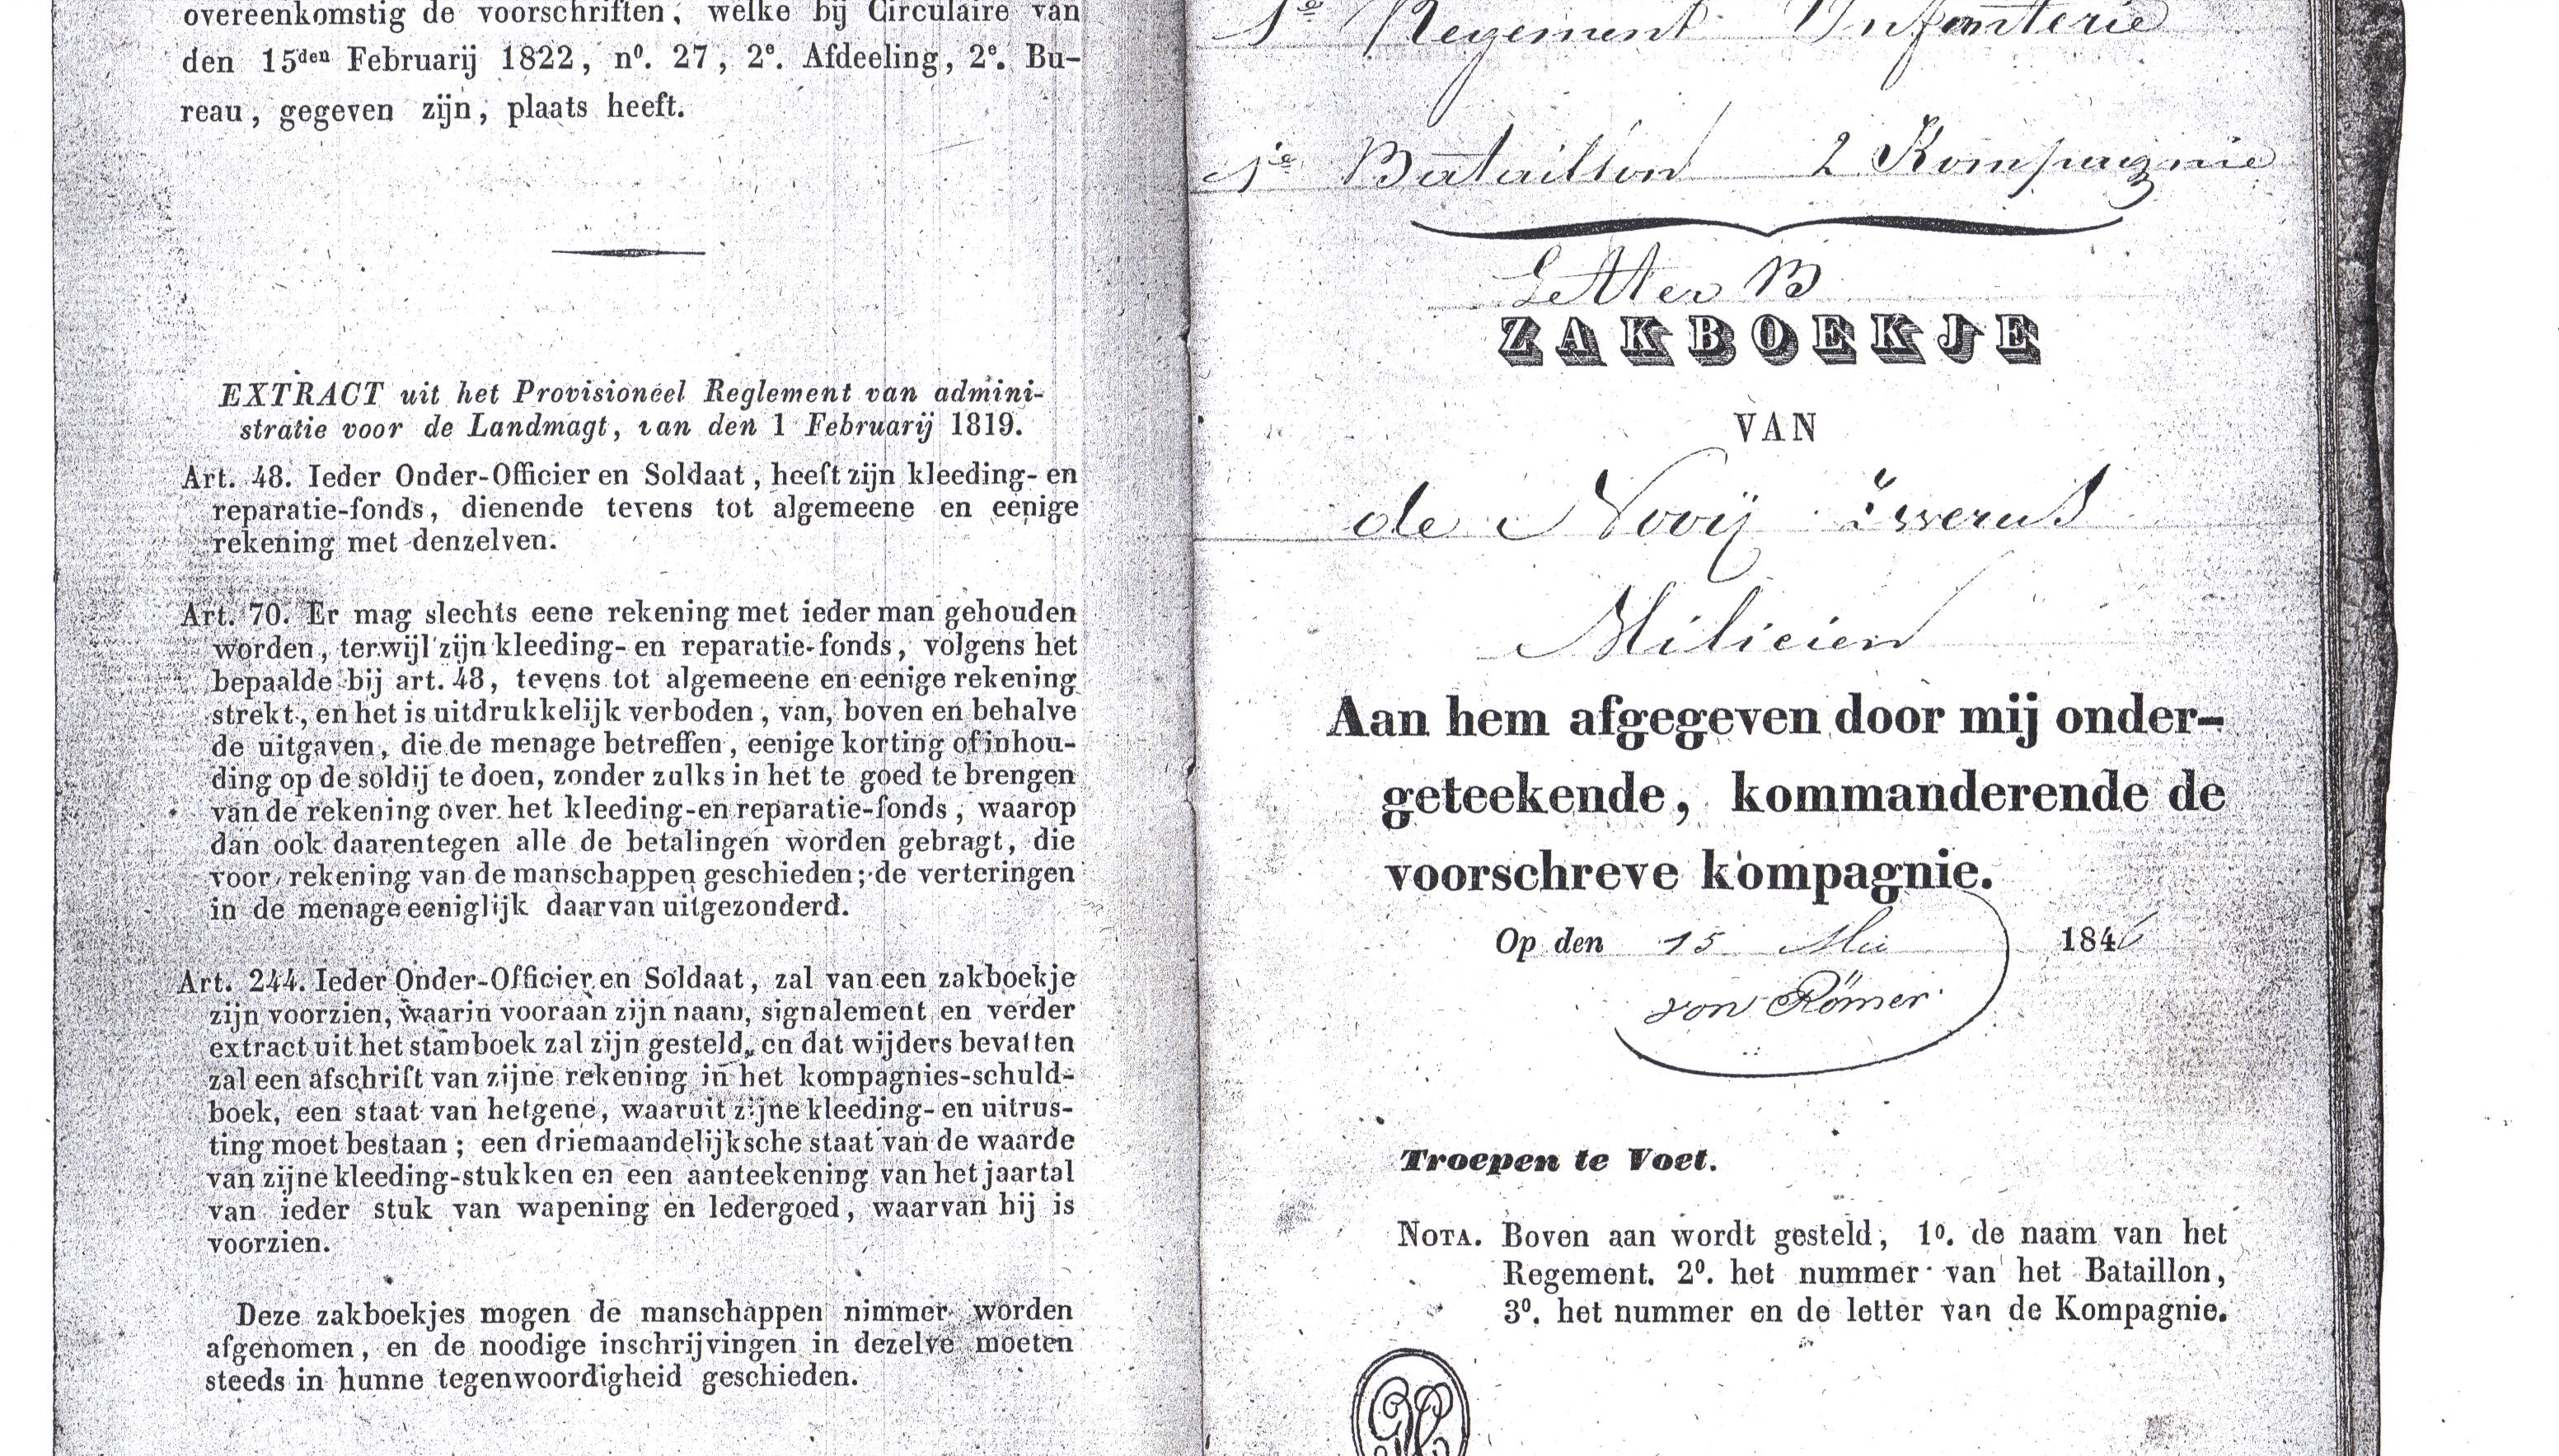 overeenkomstig de voorschriften, welke bij Circulaire van
den 15den Februarij 1822, nº. 27, 2e. Afdeeling, 2e. Bu-
reau, gegeven zijn, plaats heeft.
EXTRACT uit het Provisioneel Reglement van admini-
stratie voor de Landmagt, van den 1 Februarij 1819.
Art. 48. Ieder Onder-Officier en Soldaat, heeft zijn kleeding- en
reparatie-fonds, dienende tevens tot algemeene en eenige
rekening met denzelven.
Art. 70. Er mag slechts eene rekening met ieder man gehouden
worden, terwijl zijn kleeding- en reparatie-fonds, volgens het
bepaalde bij art. 48, tevens tot algemeene en eenige rekening
strekt, en het is uitdrukkelijk verboden, van, boven en behalve
de uitgaven, die de menage betreffen, eenige korting of inhou-
ding op de soldij te doen, zonder zulks in het te goed te brengen
van de rekening over het kleeding-en reparatie-fonds, waarop
dan ook daarentegen alle de betalingen worden gebragt, die
voor rekening van de manschappen geschieden; de verteringen
in de menage eeniglijk daarvan uitgezonderd.
Art. 244. Ieder Onder-Officier en Soldaat, zal van een zakboekje
zijn voorzien, waarin vooraan zijn naam, signalement en verder
extract uit het stamboek zal zijn gesteld, en dat wijders bevatten
zal een afschrift van zijne rekening in het kompagnies-schuld-
boek, een staat van hetgene, waaruit zijne kleeding- en uitrus-
ting moet bestaan; een driemaandelijksche staat van de waarde
van zijne kleeding-stukken en een aanteekening van het jaartal
van ieder stuk van wapening en ledergoed, waarvan hij is
voorzien.
Deze zakboekjes mogen de manschappen nimmer worden
afgenomen, en de noodige inschrijvingen in dezelve moeten
steeds in hunne tegenwoordigheid geschieden.
1e Regement Infanterie
1e Bataillon 2 Kompagnie
Letter B
ZAKBOEKJE
VAN
de Nooij
Milicien
Aan hem afgegeven door mij onder-
geteekende, kommanderende de
voorschreve kompagnie.
Op den 15 Mei 1846
von Römer
Troepen te Voet.
NOTA. Boven aan wordt gesteld, 1º. de naam van het
Regement. 2º. het nummer van het Bataillon,
3º. het nummer en de letter van de Kompagnie.